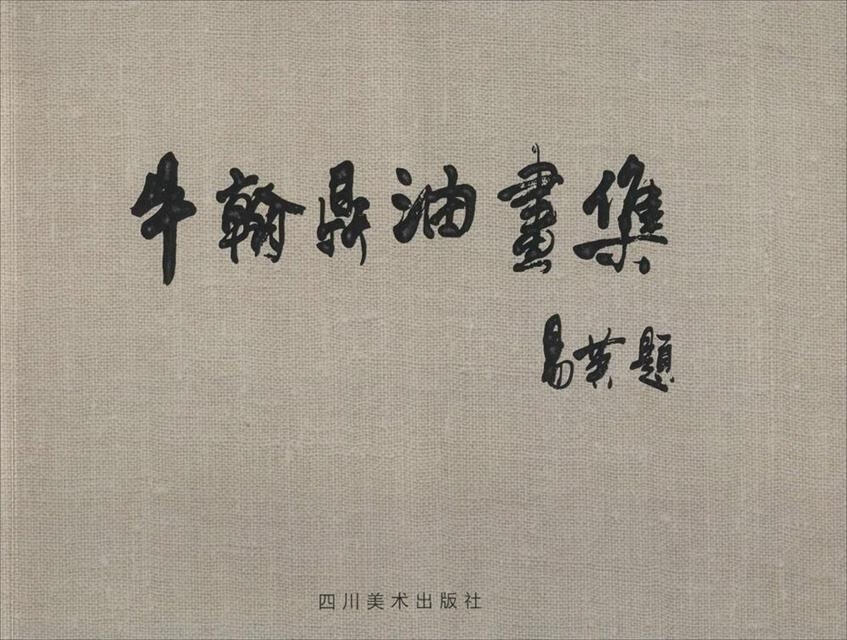 牛翰鼎油畫集
易英題
四川美术出版社